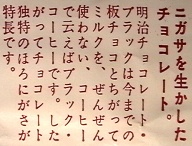 ニガサを生かした
チョコレート。
明治チョコレート・
ブラックは今までの
板チョコとちがって
ミルクを、ぜんぜん
使わない、コーヒー
で云えばブラック・
コーヒーです。した
がってチョコレート
独特のほろにがさが
特長です。